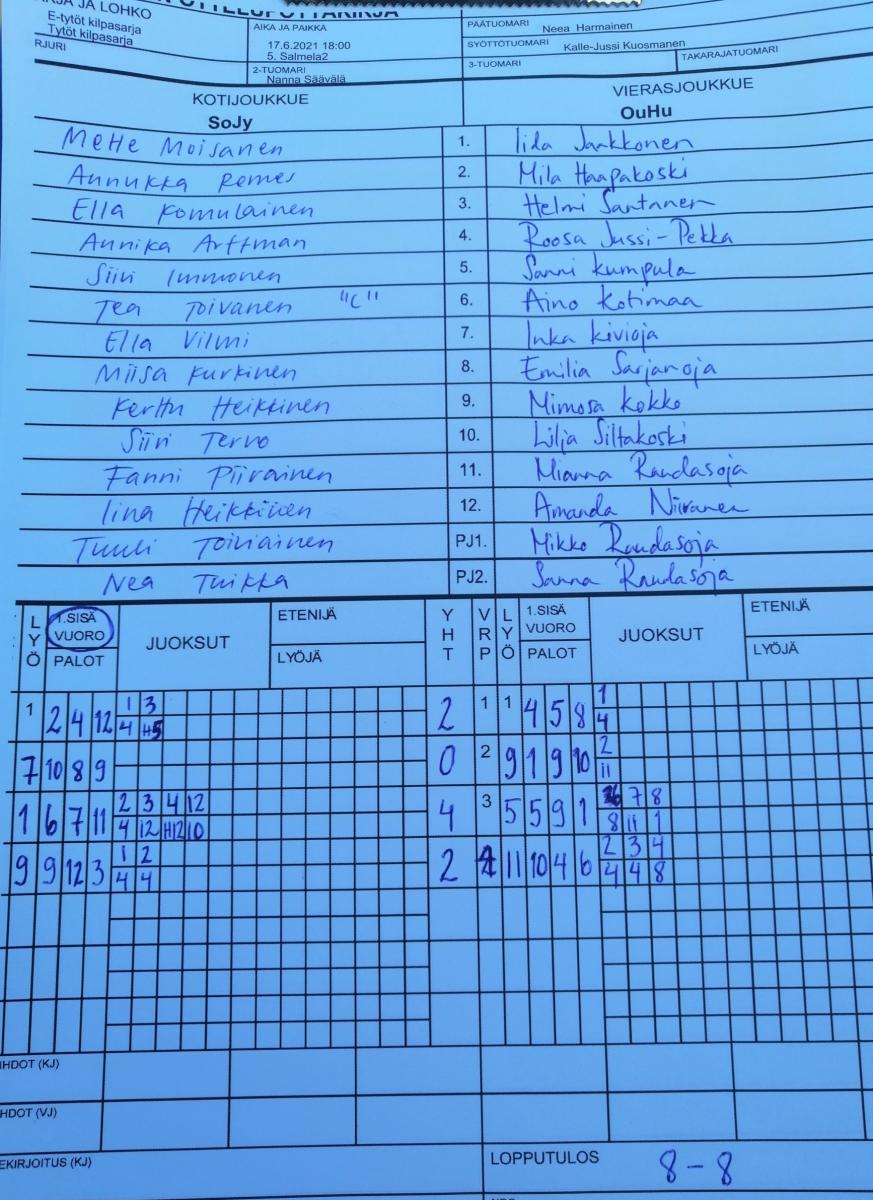 ARJA JA LOHKO
E-tytöt kilpasarja
Tytöt kilpasarja
RJURI
AIKA JA PAIKKA
17.6.2021 18:00
5. Salmela2
2-TUOMARI
Nanna Säävälä
PÄÄTUOMARI
Neea Harmainen
SYÖTTÖTUOMARI Kalle-Jussi Kuosmanen
3-TUOMARI TAKARAJATUOMARI
KOTIJOUKKUE VIERASJOUKKUE
SoJy OuHu
Mette Moisanen 1. Iida Jaakkonen
Annukka Remes 2. Mila Haapakoski
Ella Komulainen 3. Helmi Santanen
Annika Arffman 4. Roosa Jussi-Pekka
Siiri Immonen 5. Sanni Kumpula
Tea Toivanen "C" 6. Aino Kotimaa
Ella Vilmi 7. Inka Kivioja
Miisa Kurkinen 8. Emilia Sarjanoja
Kerttu Heikkinen 9. Mimosa Kokko
Siiri Tervo 10. Lilja Siltakoski
Fanni Piirainen 11. Mianna Raudasoja
Iina Heikkinen 12. Amanda Niiranen
Tuuli Toiviainen PJ1. Mikko Raudasoja
Nea Tuikka PJ2. Sanna Raudasoja
LYÖ 1.SISÄ VUORO PALOT JUOKSUT ETENIJÄ LYÖJÄ YHT VRP LYÖ 1.SISÄ VUORO PALOT JUOKSUT ETENIJÄ LYÖJÄ
1 3 1
1 2 4 12 2 1 1 4 5 8
4 H5 4
2
7 10 8 9 0 2 9 1 9 10
11
2 3 4 12 7 8
1 6 7 11 4 3 5 5 9 1
4 12 H12 10 8 11 1
1 2 2 3 4
9 9 12 3 2 4 11 10 4 6
4 4 4 4 8
HDOT (KJ)
HDOT (VJ)
EKIRJOITUS (KJ)
LOPPUTULOS 8-8